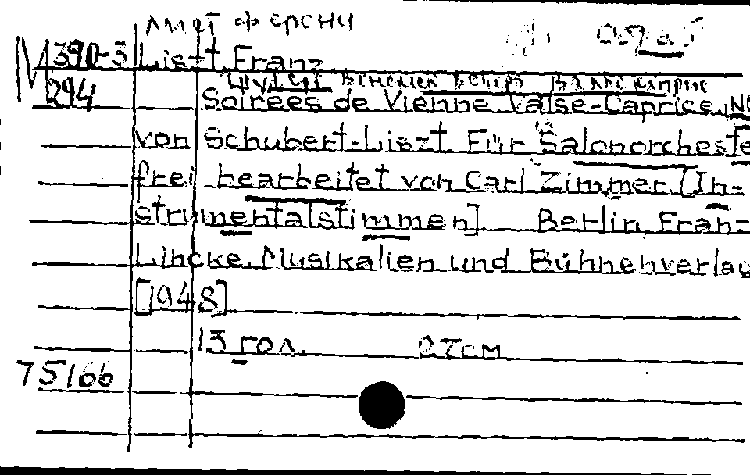 Лист Ференц
М390-3 Liszt, Franz
294 Soirées de Vienne Valse-Caprice N
von Schubert-Liszt Für Salonorcheste
frei bearbeitet von Carl Zimmer [In-
strumentalstimmen] Berlin Fran-
Lincke, Musikalien und Bühnenverlag
[1948]
13 гол. 27см
75166